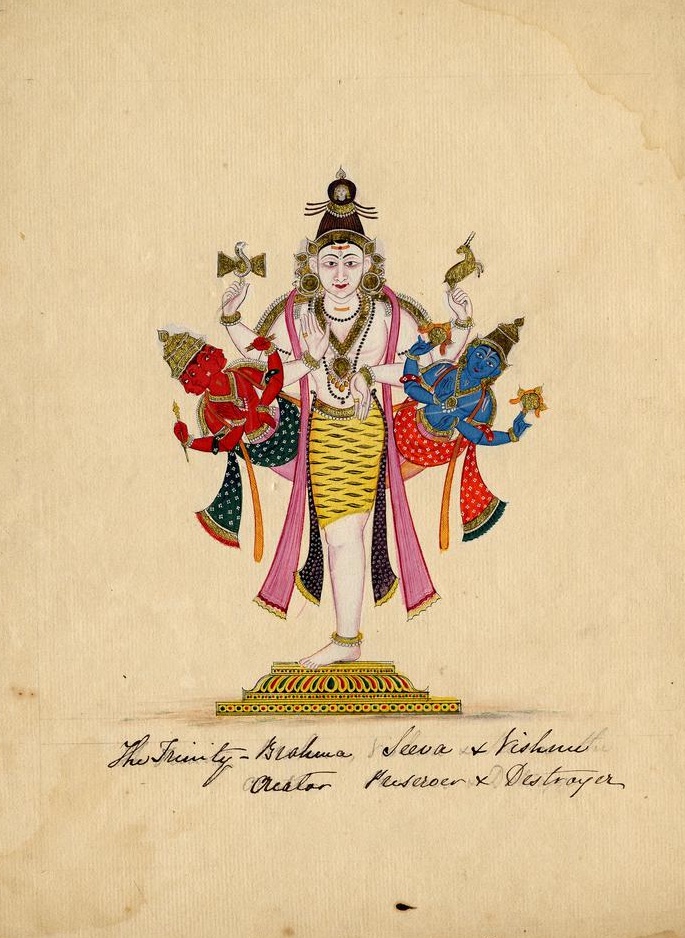 The Trinity - Brahma, Seeva & Vishnu
Creator Preserver & Destroyer